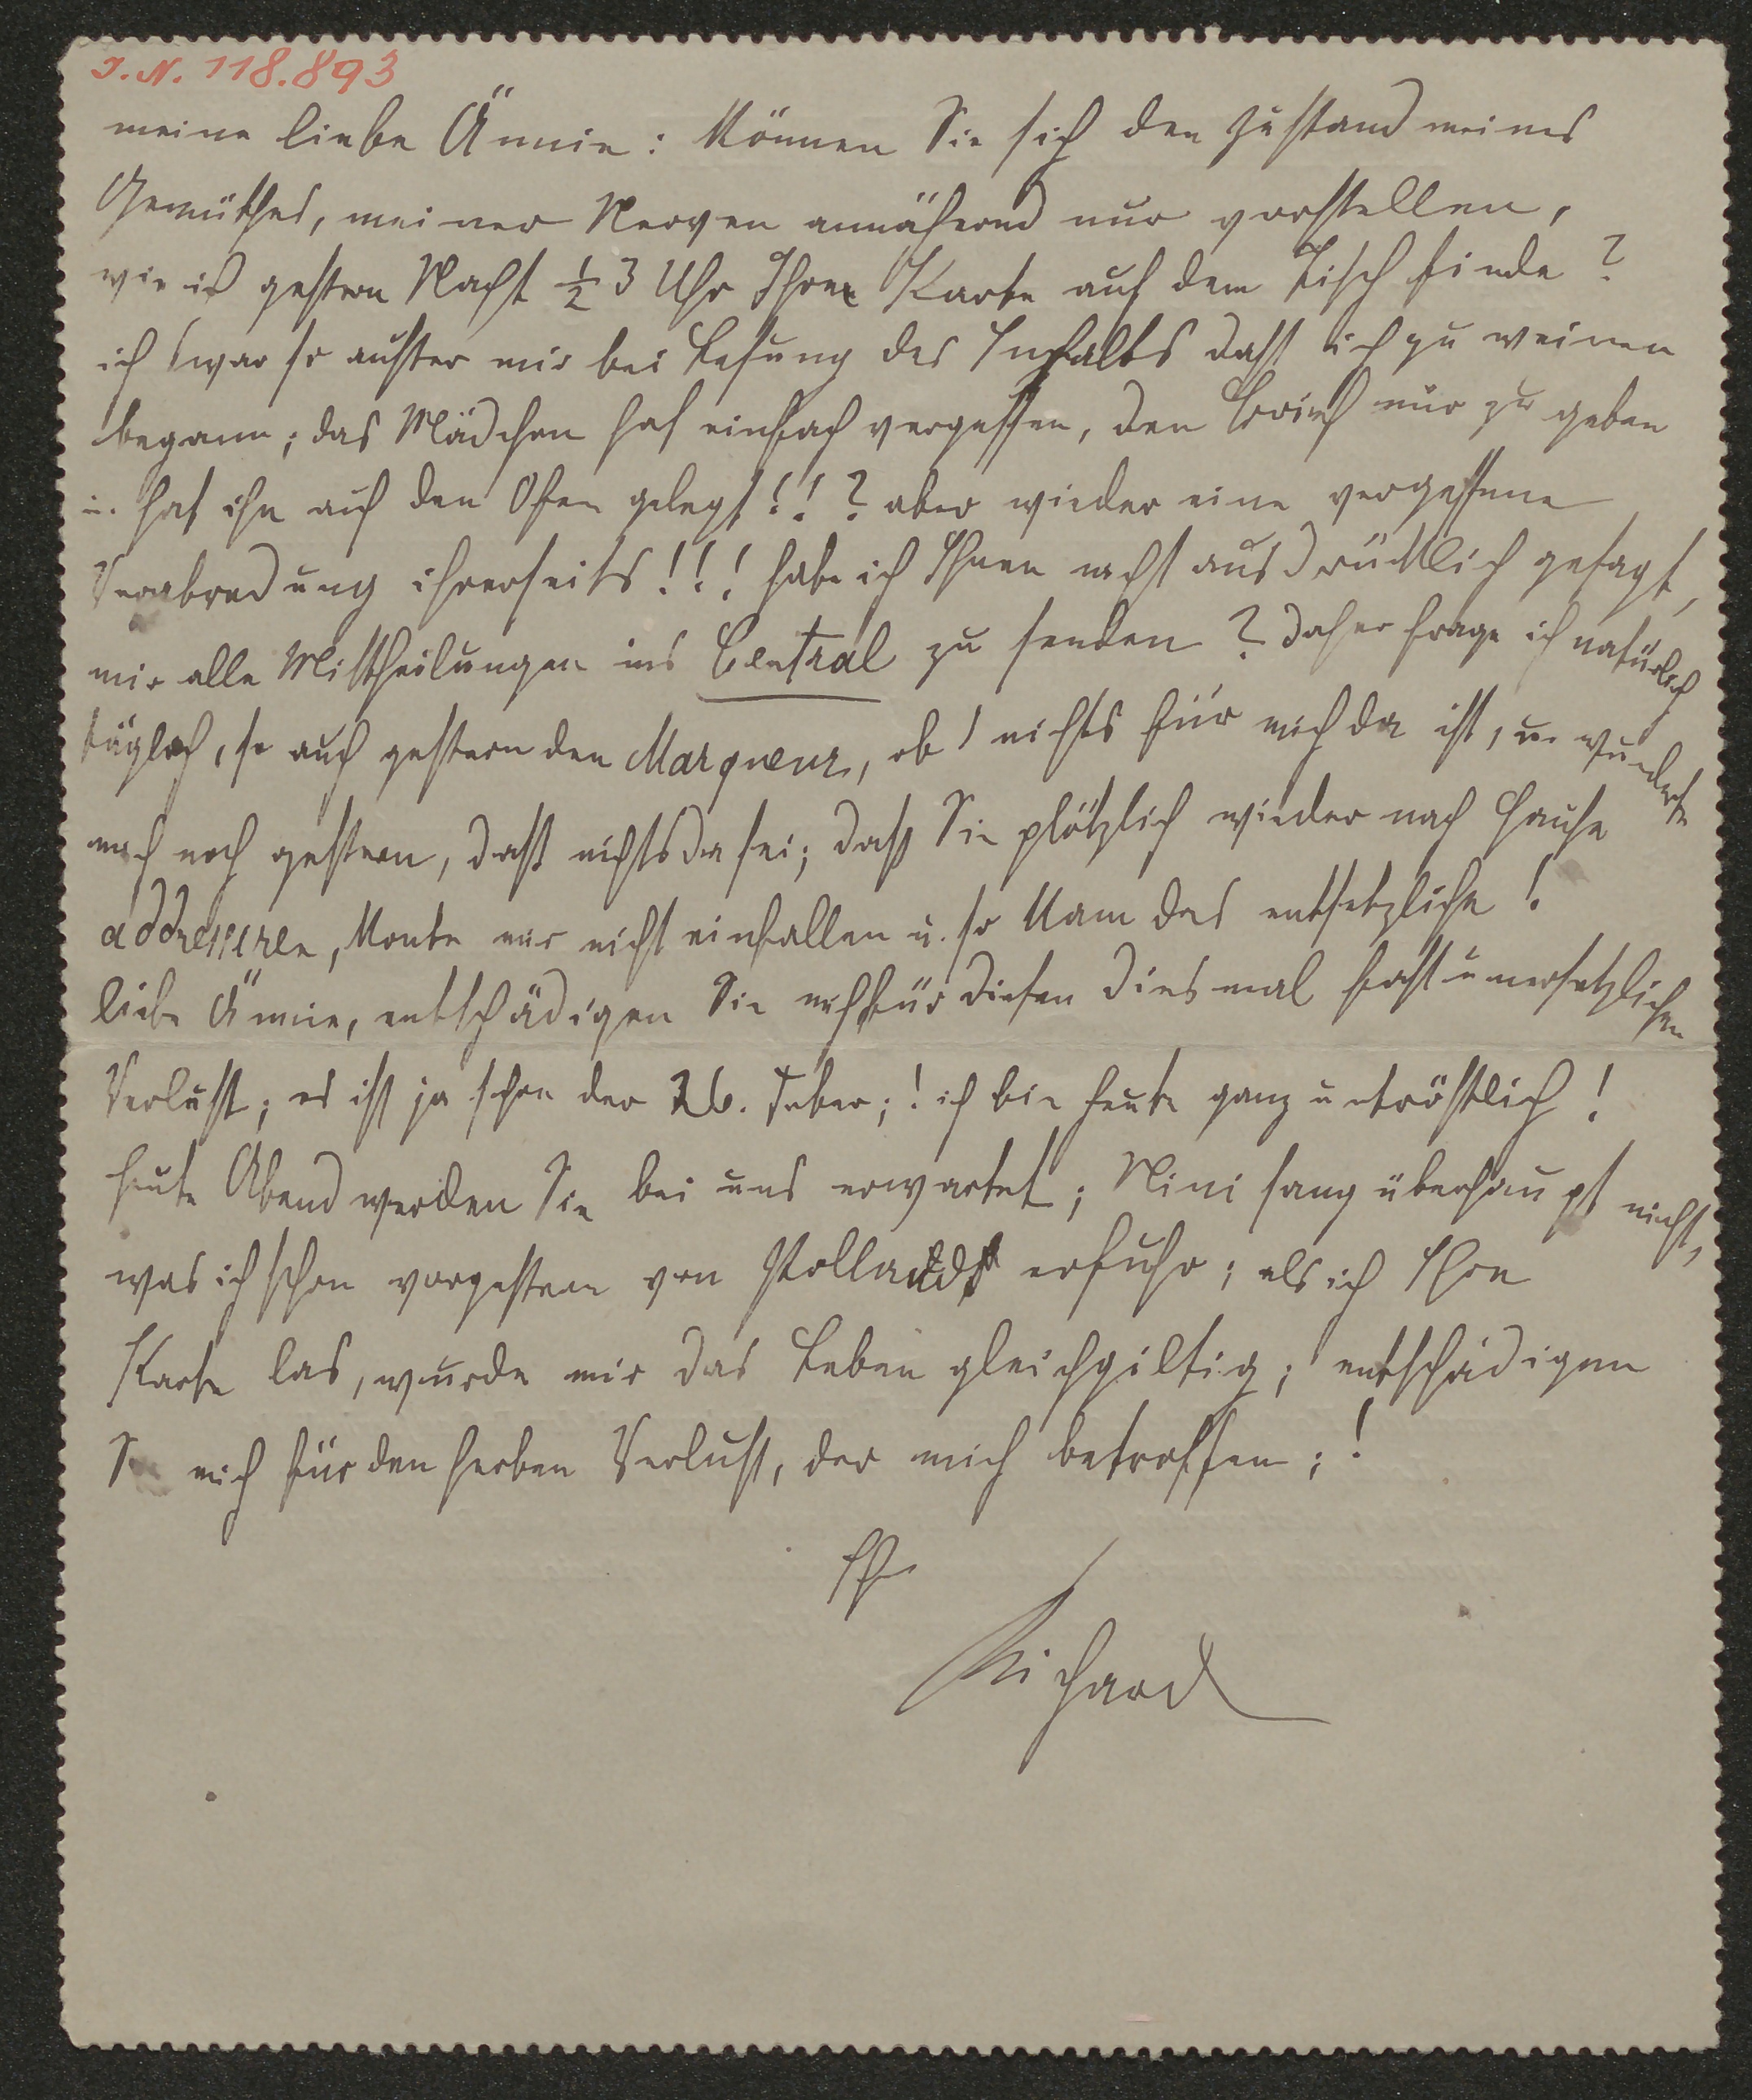 I. N. 118.893
meine liebe Ännie: Können Sie sich den Zustand meines
Gemüthes, meiner Nerven annähernd nur vorstellen,
wie ich gestern Nacht ½ 3 Uhr Ihre Karte auf dem Tisch finde?
ich war so ausser mir bei Lesung des Inhalts dass ich zu weinen
begann; das Mädchen hat einfach vergessen, den Brief mir zu geben
u. hat ihn auf den Ofen gelegt!!? aber wieder eine vergessene
Verabredung ihrerseits!!! habe ich Ihnen nicht ausdrücklich gesagt,
mir alle Mittheilungen ins Central zu senden? Daher frage ich natürlich
täglich, so auch gestern den Marqueur, ob nichts für mich da ist, u. wunderte
mich noch gestern, dass nichts da sei; dass Sie plötzlich wieder nach Hause
addressiren, konte mir nicht einfallen u. so kam das entsetzliche!
liebe Ännie, entschädigen Sie mich für diesen diesmal fast unersetzlichen
Verlust; es ist ja schon der 26. Feber;! ich bin heute ganz untröstlich!
heute Abend werden Sie bei uns erwartet; Mini sang überhaupt nicht,
was ich schon vorgestern von erfuhr; als ich Ihre
Karte las, wurde mir das Leben gleichgiltig; entschädigen
Sie mich für den herben Verlust, der mich betroffen;!
Ihr
Richard